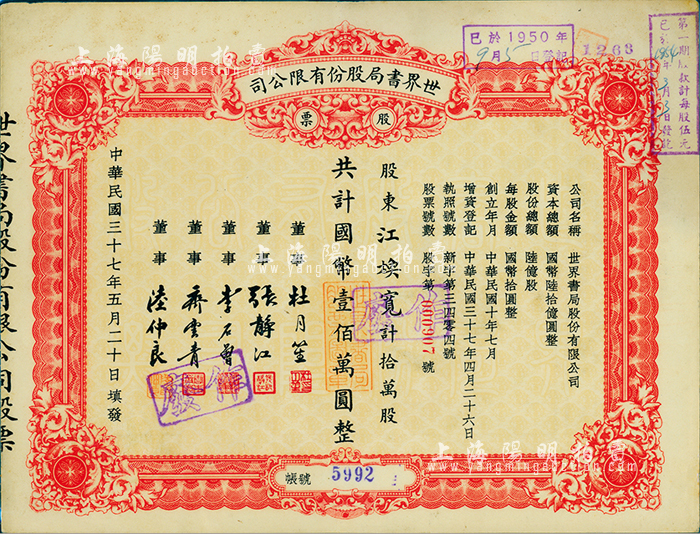 世界書局股份有限公司
股票
公司名稱 世界書局股份有限公司
資本總額 國幣陸拾億圓整
股份總額 陸億股
每股金額 國幣拾圓整
創立年月 中華民國十年七月
增資登記 中華民國三十七年四月二十六日
執照號數 新字第三四零四號
股票號數 股字第 號
股東 江煥寬 計拾萬股
共計國幣壹佰萬圓整
董事 杜月笙
董事 張靜江
董事 李石曾
董事 齊雲青
董事 陸仲良
中華民國三十七年五月二十日填發
帳號 5992
作廢
作廢
已於1950年
9月5日登記
1268
第一期股款計每股伍元
世界書局股份有限公司股票
上海陽明拍賣
www.yangmingauction.com